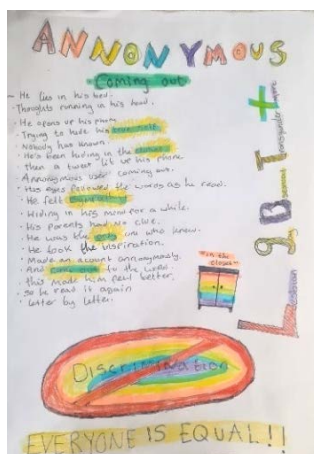 ANNONYMOUS
Coming out
- He lies in his bed.
• Thoughts running in his head.
• He opens up his phone
• Trying to hide his true self.
• Nobody has known.
• He's been hiding in the closet
• then a tweet lit up his phone
• Annonymous user coming out.
• His eyes followed the words as he read.
• He felt
• Hiding in his mind for a while.
• His parents had no clue.
• He was the only one who knew.
• He took the inspiration.
• Made an account annonymously.
• And came out to the world
• this made him feel better.
• so he read it again
• letter by letter.
LgBT+
"in the closet"
Discrimination
EVERYONE IS EQUAL!!